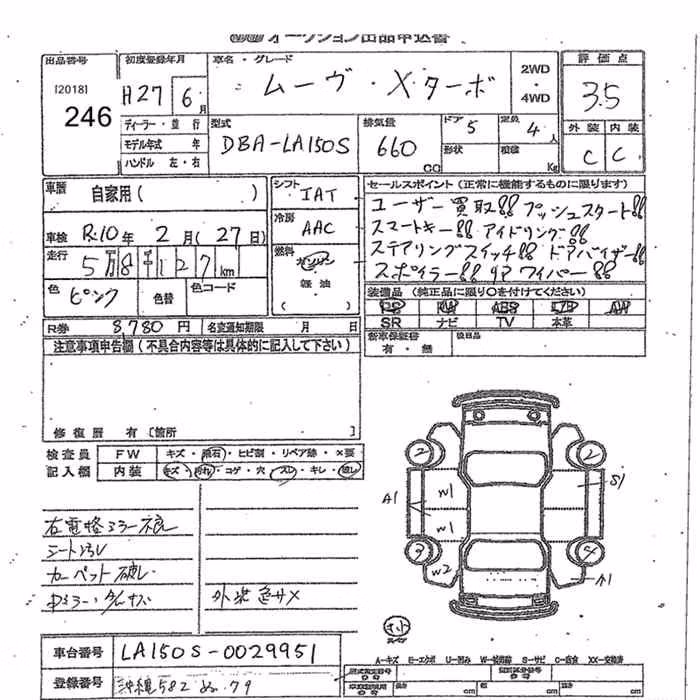 オークション出品申込書
出品番号 初度登録年月 車名・グレード 評価点
[2018] 246 H27年6月 ムーヴ・Xターボ 2WD・4WD 3.5
ディーラー・並行 型式 排気量 ドア 定員 外装 内装
モデル年式 年 DBA-LA150S 660cc 5 4人 C C
ハンドル 左・右 形状 積載 Kg
車歴 自家用( ) シフト IAT セールスポイント(正常に機能するものに限ります)
ユーザー買取!! プッシュスタート!!
車検 R.10年 2月(27日) 冷房 AAC スマートキー!! アイドリング!!
走行 5万8千127km 燃料 ガソリン・軽油 ( ) ステアリングスイッチ!! ドアバイザー!!
スポイラー!! リアワイパー!!
色 ピンク 色替 色コード
装備品(純正品に限り○を付けてください)
PS PW ABS エアB AW
SR ナビ TV 本革
R券 8,780円 名変通知期限 月 日
新車保証書 有・無 後日品
注意事項申告欄(不具合内容等は具体的に記入して下さい)
修復歴 有 [箇所 ]
検査員 FW キズ・飛石・ヒビ割・リペア跡・×要
記入欄 内装 キズ・汚れ・コゲ・穴・スレ・キレ・
右電格ミラー不良
シート汚レ
カーペット破レ
外装色サメ
2 2 A1 W1 W1 S1 W2 A1
車台番号 LA150S-0029951
登録番号 沖縄582 79
A-キズ E-エクボ U-凹み S-サビ C-腐食 XX-交換済